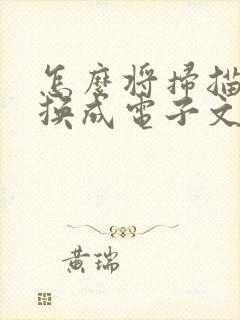 怎麼將掃描
換成電子文
黃瑞